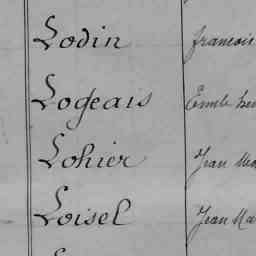 Lodin francois
Logeais
Lohier Jean
Loisel Jean